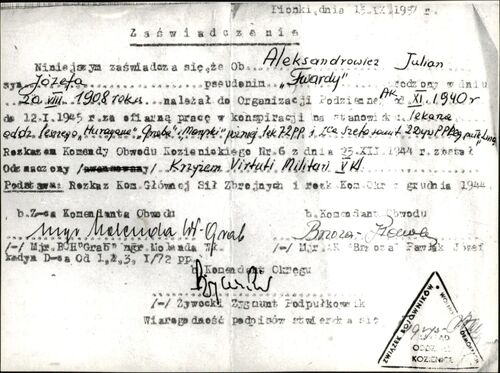 Pionki, dnia 15.IX.1957 r.
Zaświadczenie
Niniejszym zaświadcza się, że Ob. Aleksandrowicz Julian
syn Józefa pseudonim "Twardy" urodzony w dniu
20 VIII 1908 roku należał do Organizacji Podziemnej AK od XI. 1940 r
do 12.I.1945 r za ofiarną pracę w konspiracji na stanowisku lekarza
oddz. leśnego "Huragana", "Graba" później lek 72 PP. i
Rozkazem Komendy Obwodu Kozienickiego Nr. 6 z dnia 25.XII.1944 r został
Odznaczony /awansowany/ Krzyżem Virtuti Militari V kl
Podstawa: Rozkaz Kom. Głównej Sił Zbrojnych i rozk Kom. Okr. grudnia 1944
b. Z-sa Komendanta Obwodu b. Komendant Obwodu
mgr Molenda W-Grab Brzoza
/-/ Mjr. BCH "Grab" mgr. Molenda Wł. /-/ Mjr. AK "Brzoza" Pawlak Józef
kadyn D-sa Od 1,2,3, I/72 pp
b. Komendant Okręgu
/-/ Żywocki Zygmunt Podpułkownik
Wiarogodność podpisów stwierdza się
ZWIĄZEK BOJOWNIKÓW
ODDZIAŁ
KOZIENICE